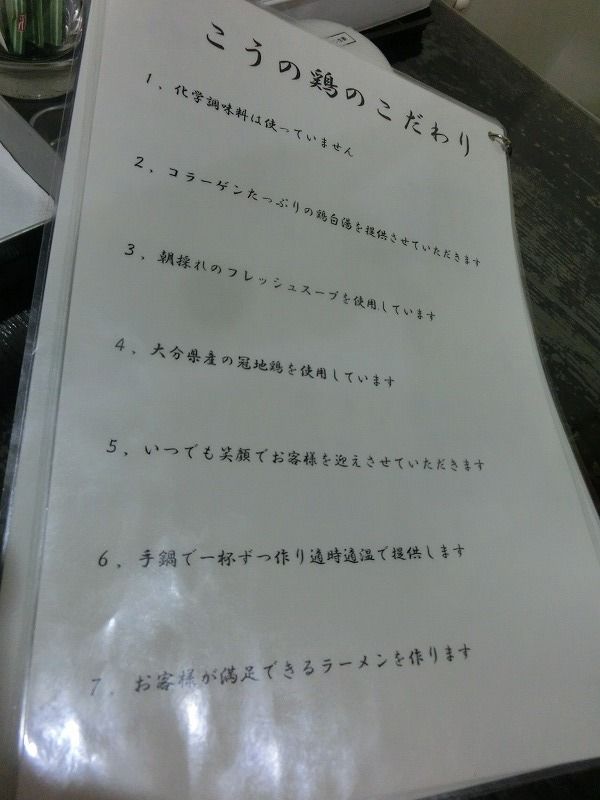 こうの鶏のこだわり
1，化学調味料は使っていません
2，コラーゲンたっぷりの鶏白湯を提供させていただきます
3，朝採れのフレッシュスープを使用しています
4，大分県産の冠地鶏を使用しています
5，いつでも笑顔でお客様を迎えさせていただきます
6，手鍋で一杯ずつ作り適時適温で提供します
7，お客様が満足できるラーメンを作ります